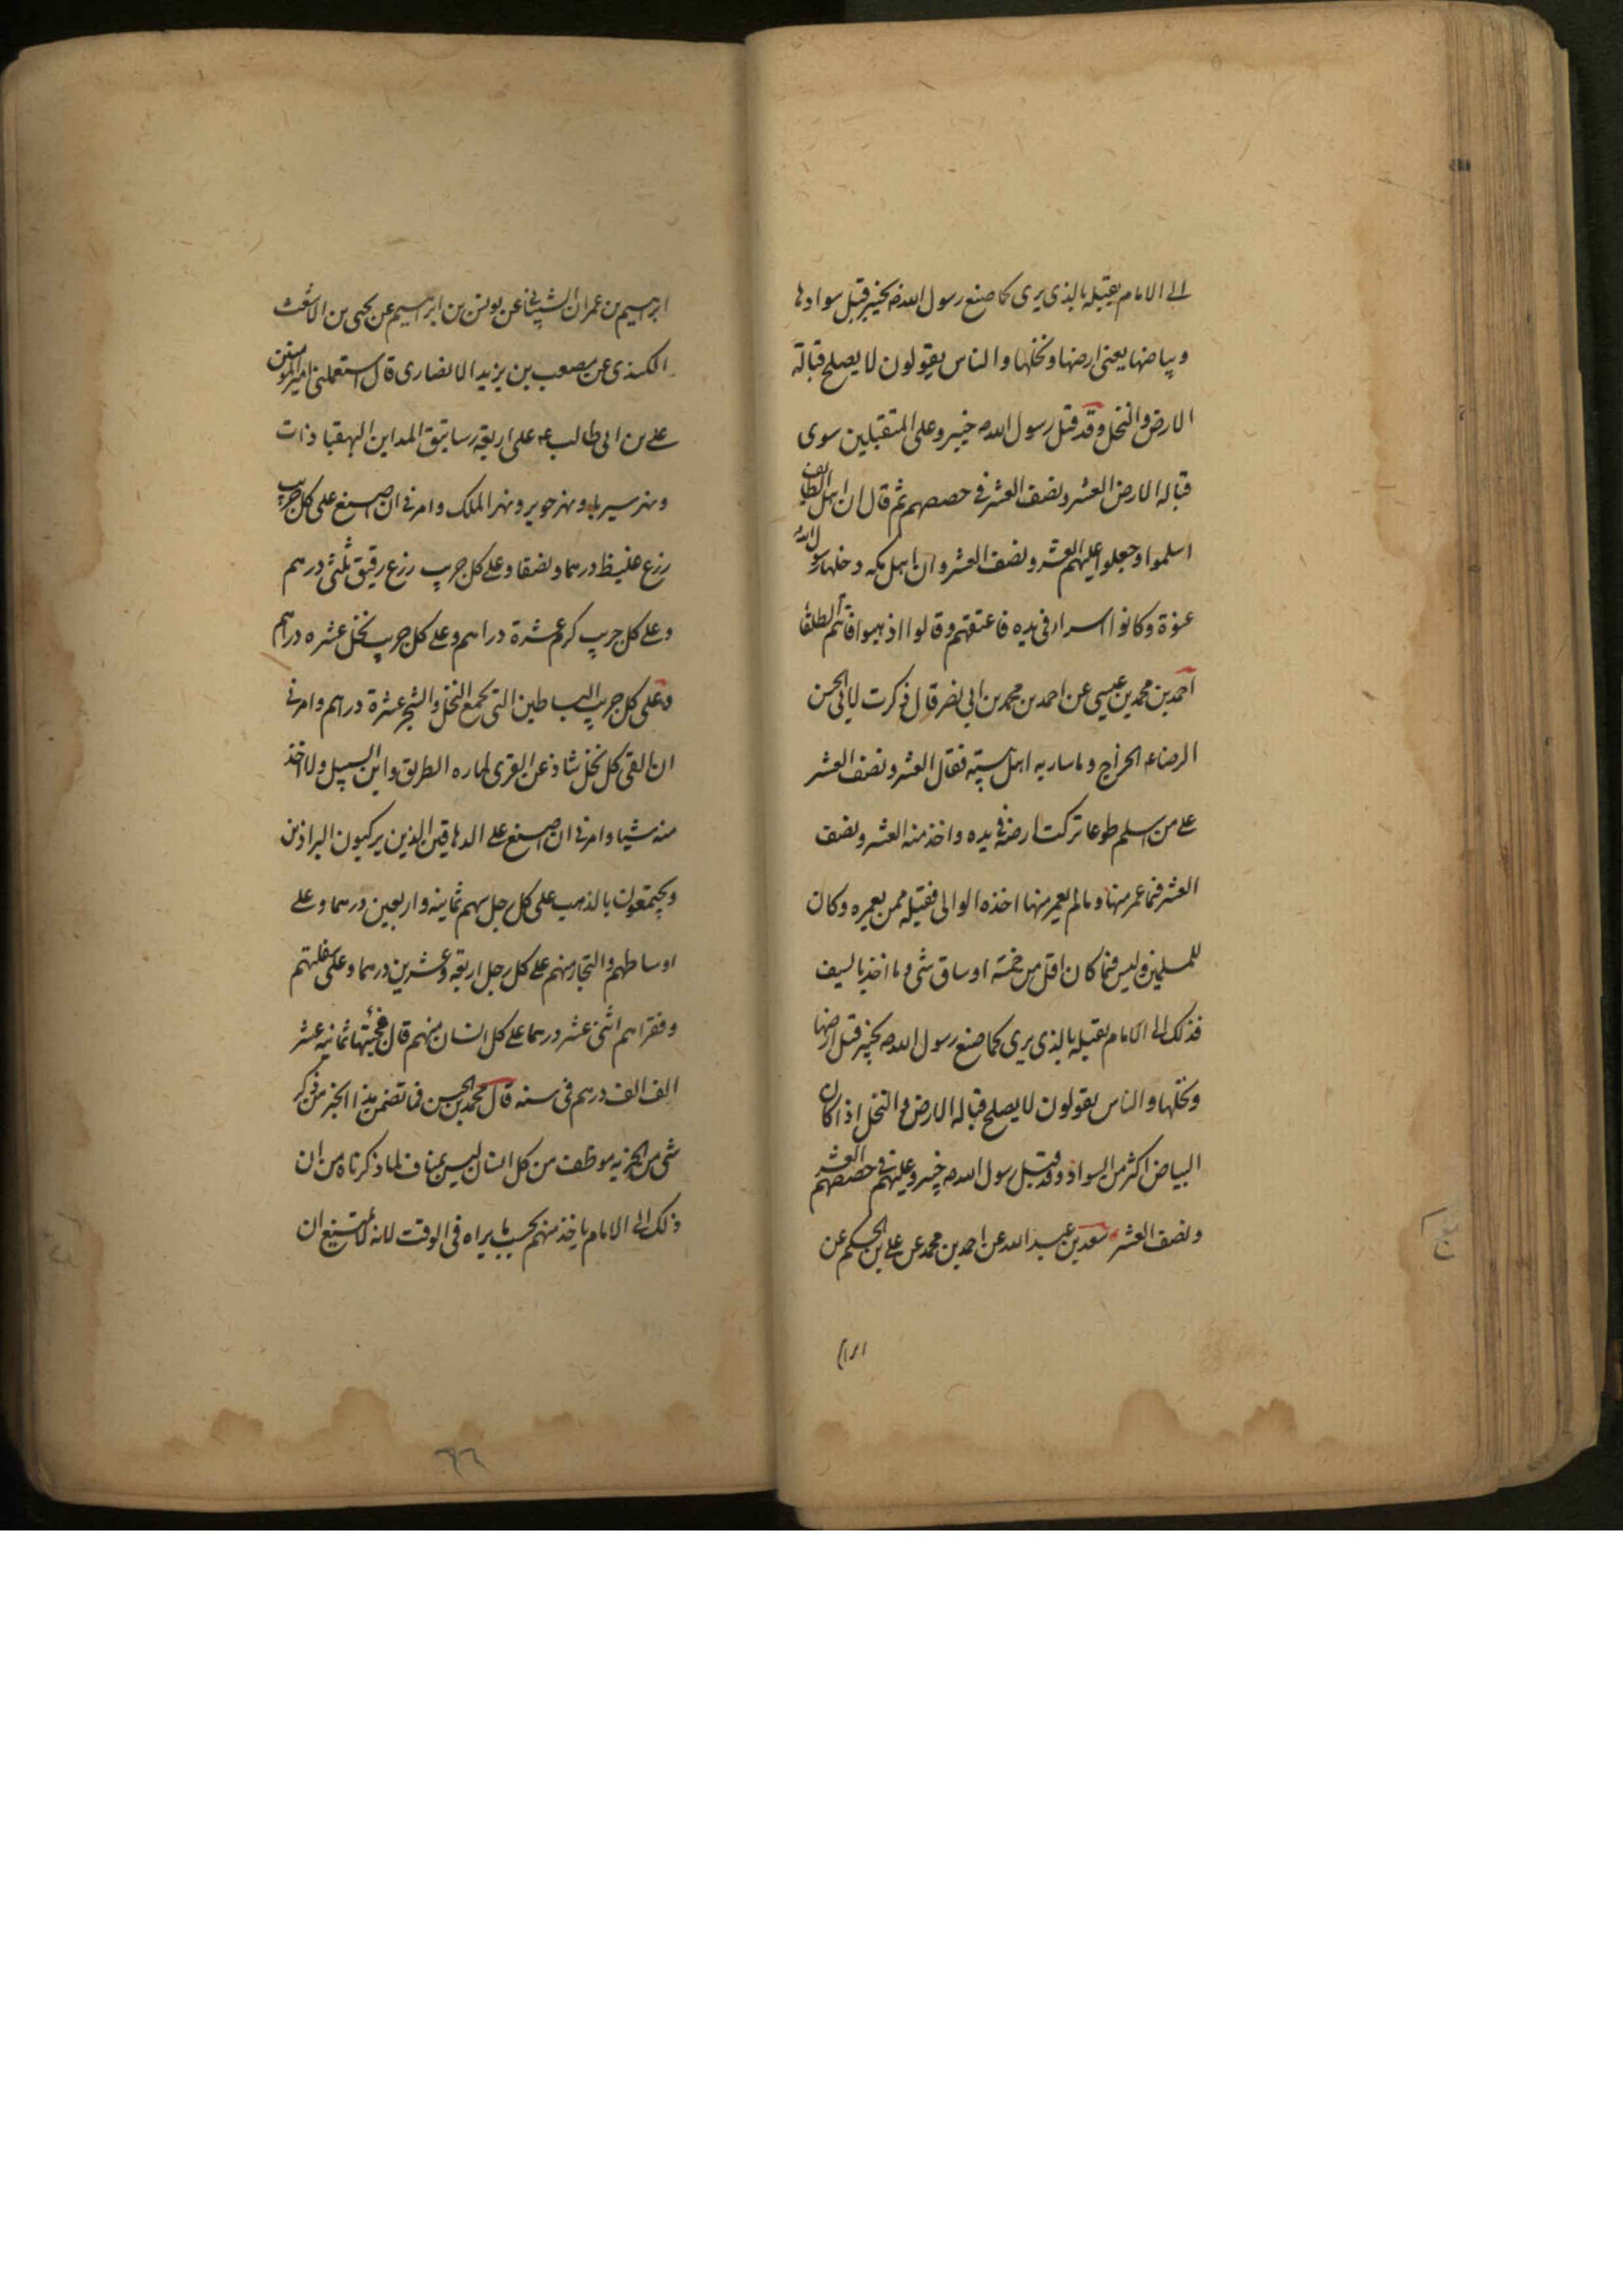 الى الامام يقبله بالذي يرى كما صنع رسول الله ص بخيبر قبل سوادها
وبياضها يعني ارضها ونخلها والناس يقولون لا يصلح قبالة
الارض والنخل وقد قبل رسول الله ص خيبر وعلى المتقبلين سوى
قبالة الارض العشر ونصف العشر في حصصهم ثم قال ان اهل الطائف
اسلموا وجعلوا عليهم العشر ونصف العشر وان اهل مكه دخلها رسول الله
عنوة وكانوا اسراء في يده فاعتقهم وقالوا اذهبوا فانتم الطلقاء
احمد بن محمد بن عيسى عن احمد بن محمد بن ابي نصر قال ذكرت لابي الحسن
الرضا ع الخراج وما سار به اهل بيته فقال العشر ونصف العشر
على من اسلم طوعا تركت ارضه في يده واخذ منه العشر ونصف
العشر فيما عمر منها وما لم يعمر منها اخذه الوالى فقبله ممن يعمره وكان
للمسلمين وليس فيما كان اقل من خمسة اوساق شى وما اخذ بالسيف
فذلك الى الامام يقبله بالذي يرى كما صنع رسول الله ص بخيبر قبل ارضها
ونخلها والناس يقولون لا يصلح قبالة الارض والنخل اذا كان
البياض اكثر من السواد وقد قبل رسول الله ص خيبر وعليهم في حصصهم العشر
ونصف العشر سعد بن عبد الله عن احمد بن محمد عن على بن الحكم عن
ابرا
ابرهيم بن عمران الشيباني عن يونس بن ابرهيم عن يحيى بن الاشعث
الكندى عن مصعب بن يزيد الانصارى قال استعملني امير المؤمنين
على بن ابى طالب ع على اربعة رساتيق المداين البهقباذات
ونهر سيريا ونهر جوير ونهر الملك وامرني ان اضع على كل جريب
زرع غليظ درهما ونصفا وعلى كل جريب زرع رقيق ثلثى درهم
وعلى كل جريب كرم عشرة دراهم وعلى كل جريب نخل عشره دراهم
وعلى كل جريب البساطين التي تجمع النخل والشجر عشرة دراهم وامرني
ان القى كل نخل شاذ عن القرى لماره الطريق وابن السبيل ولا اخذ
منه شيئا وامرني ان اضع على الدهاقين الذين يركبون البراذين
ويتختمون بالذهب على كل رجل منهم ثمانيه واربعين درهما وعلى
اوساطهم والتجار منهم على كل رجل اربعه وعشرين درهما وعلى سفلتهم
وفقراهم اثنى عشر درهما على كل انسان منهم قال فجبيتها ثمانيه عشر
الف الف درهم في سنه قال محمد بن الحسن فما تضمن هذا الخبر من ذكر
شى من الجزيه موظف من كل انسان ليس بمناف لما ذكرناه من ان
ذلك الى الامام ياخذ منهم بحسب ما يراه فى الوقت لانه لا يمتنع ان